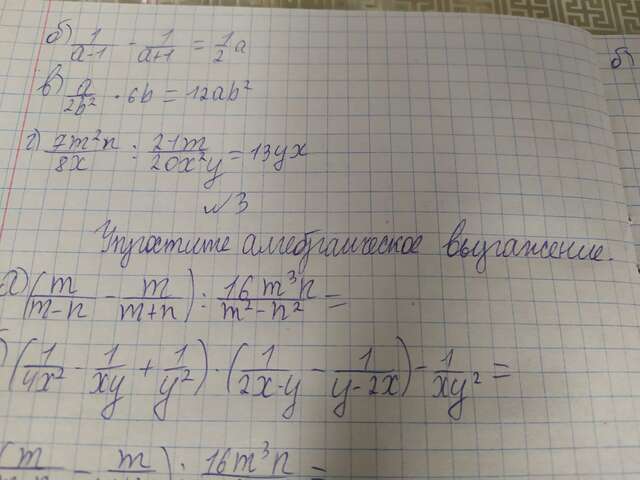 б) 1/(a-1) - 1/(a+1) = 1/2 a
в) a/(2b²) · 6b = 12ab²
г) 7m²n/(8x) : 21m/(20x²y) = 13yx
№3
Упростите алгебраическое выражение.
а) (m/(m-n) - m/(m+n)) : 16m³n/(m²-n²) =
(1/(4x²) - 1/(xy) + 1/(y²)) · (1/(2x-y) - 1/(y-2x)) - 1/(xy²) =
(m - m) · 16m³n =
б)